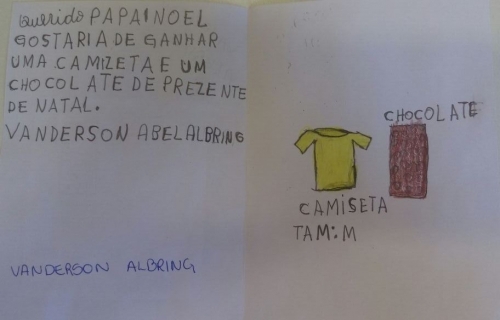 Querido PAPAI NOEL
GOSTARIA DE GANHAR
UMA CAMIZETA E UM
CHOCOLATE DE PREZENTE
DE NATAL.
VANDERSON ABEL ALBRING
VANDERSON ALBRING
CHOCOLATE
CAMISETA
TAM: M